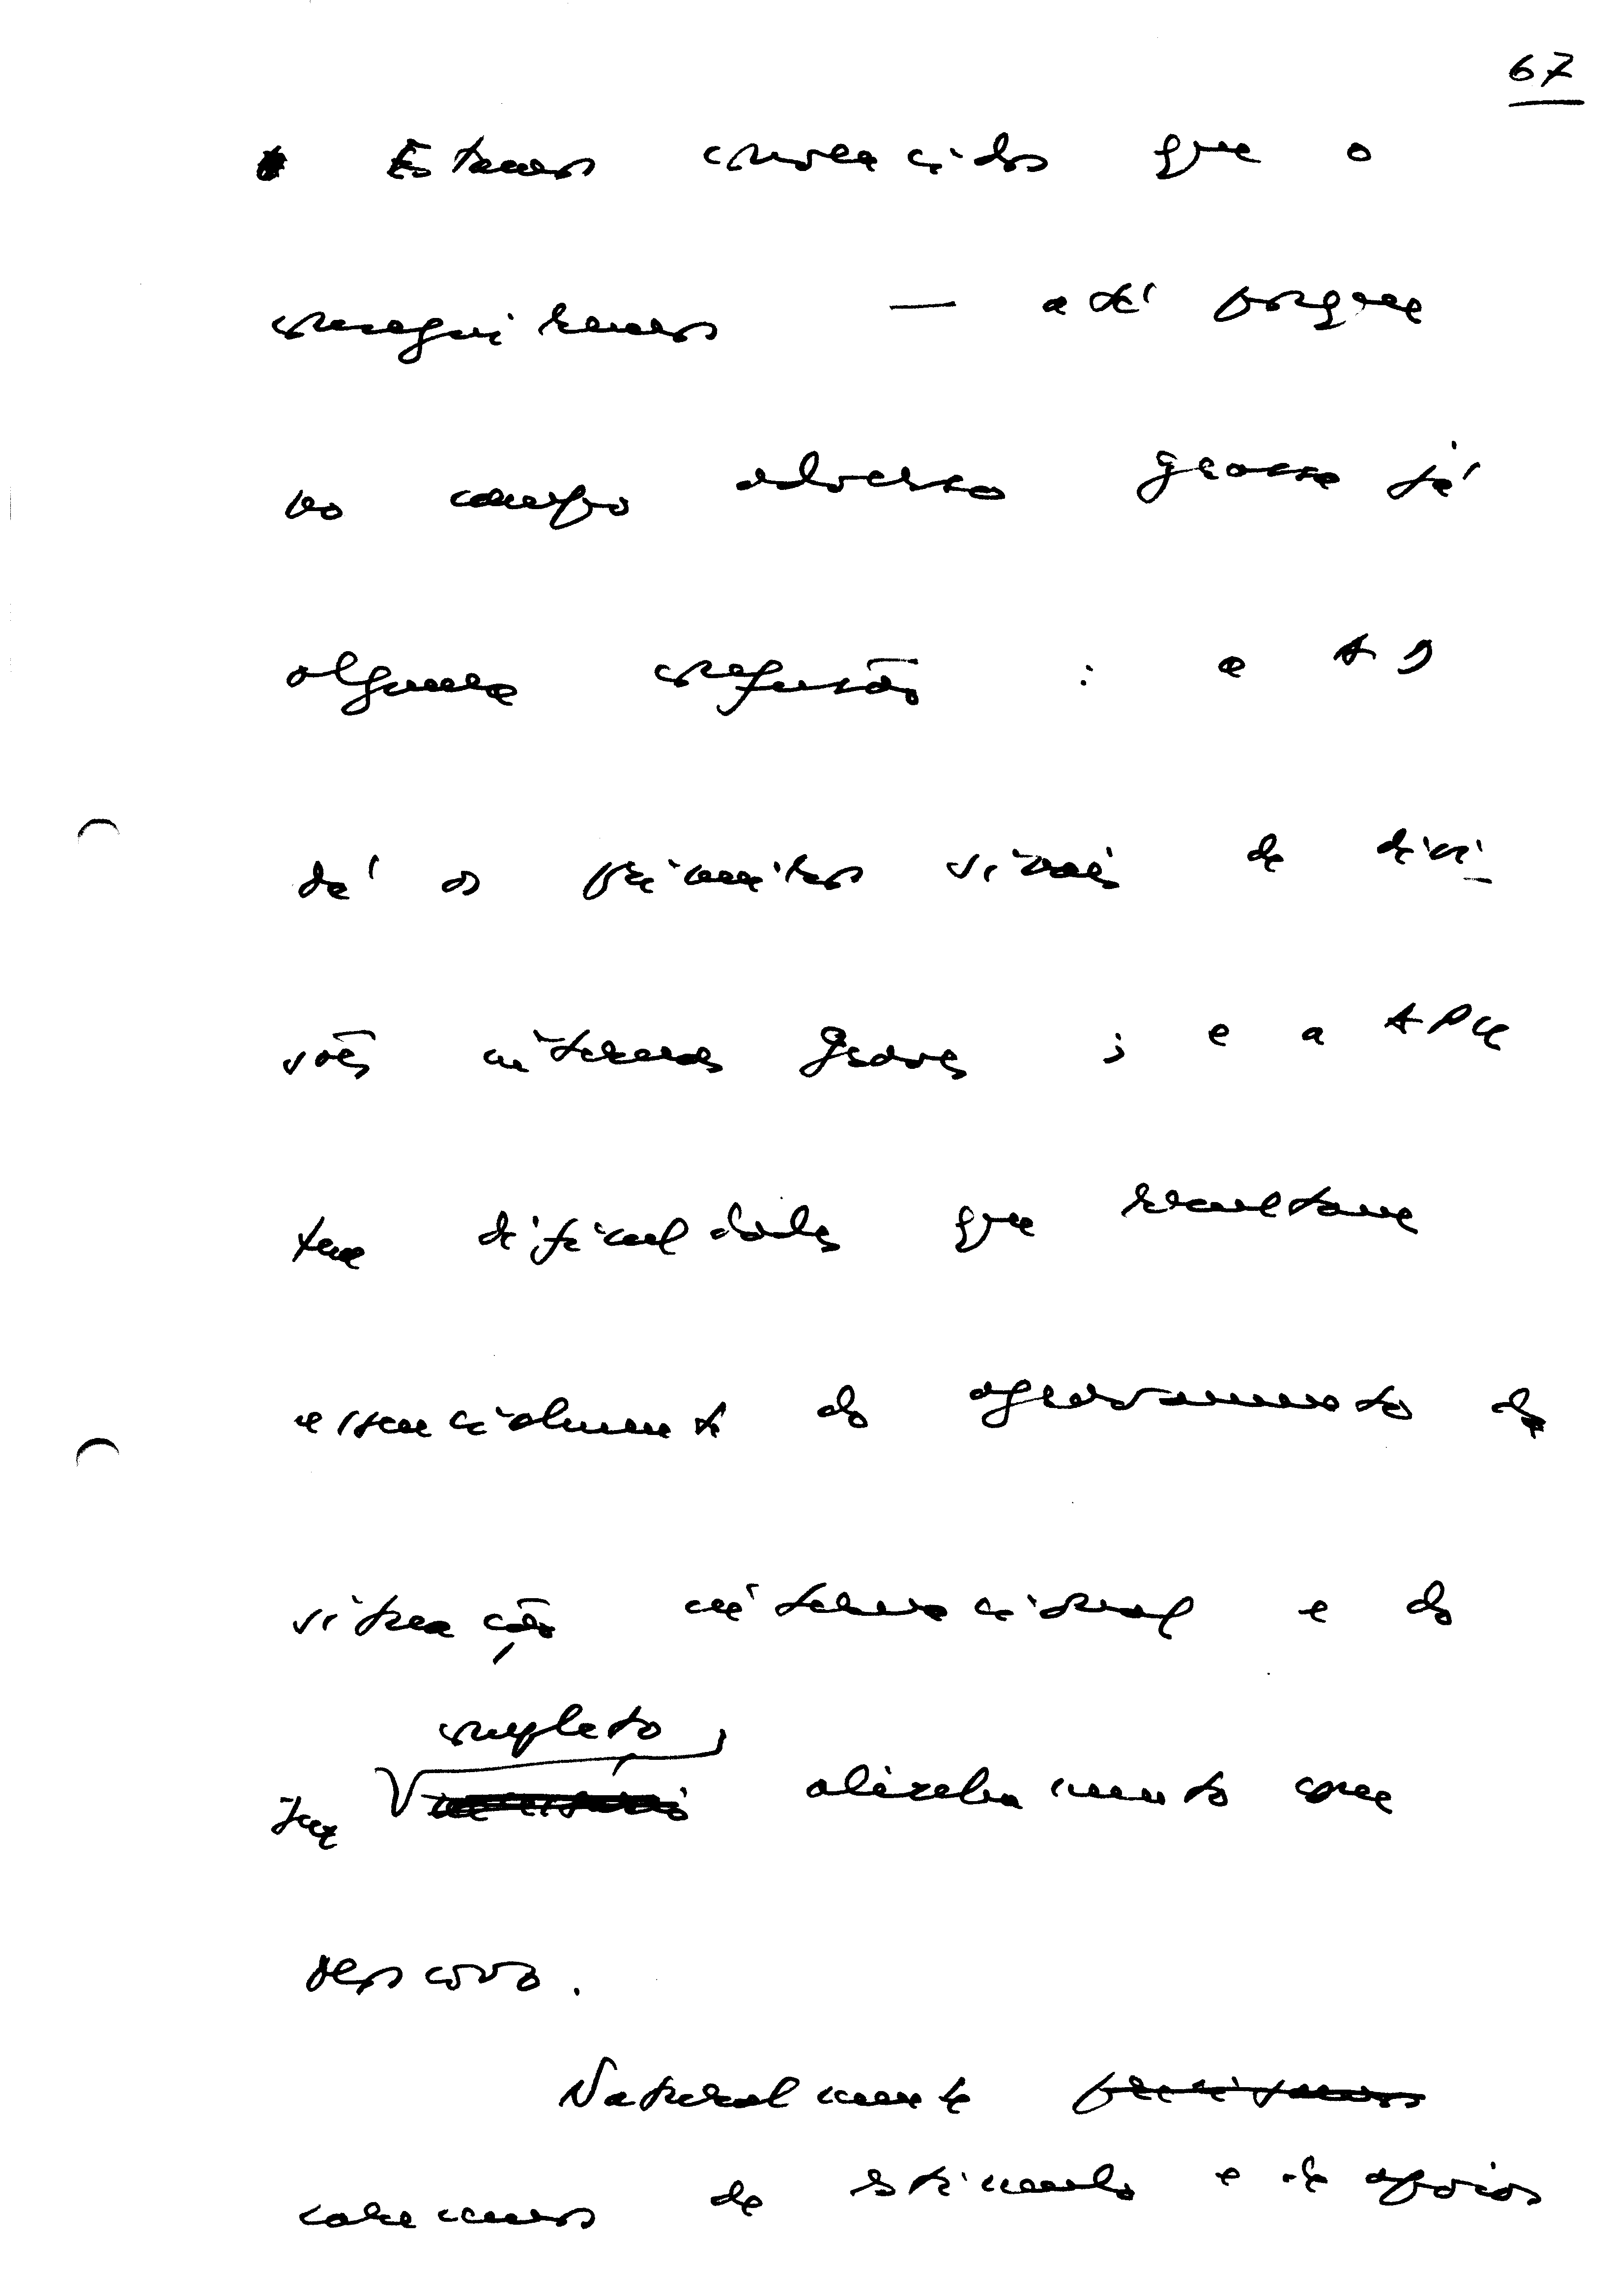 67
Estamos convencidos que o
conseguiremos — até porque
no campo adverso grassa já
alguma confusão : a AD
dá os primeiros sinais de divi-
sões internas graves ; e a APU
tem dificuldades que resultam
essencialmente do agravamento da
situação internacional e do
completo
seu alinhamento com
Moscovo.
Naturalmente precisamos
carecemos de estímulo e de apoios